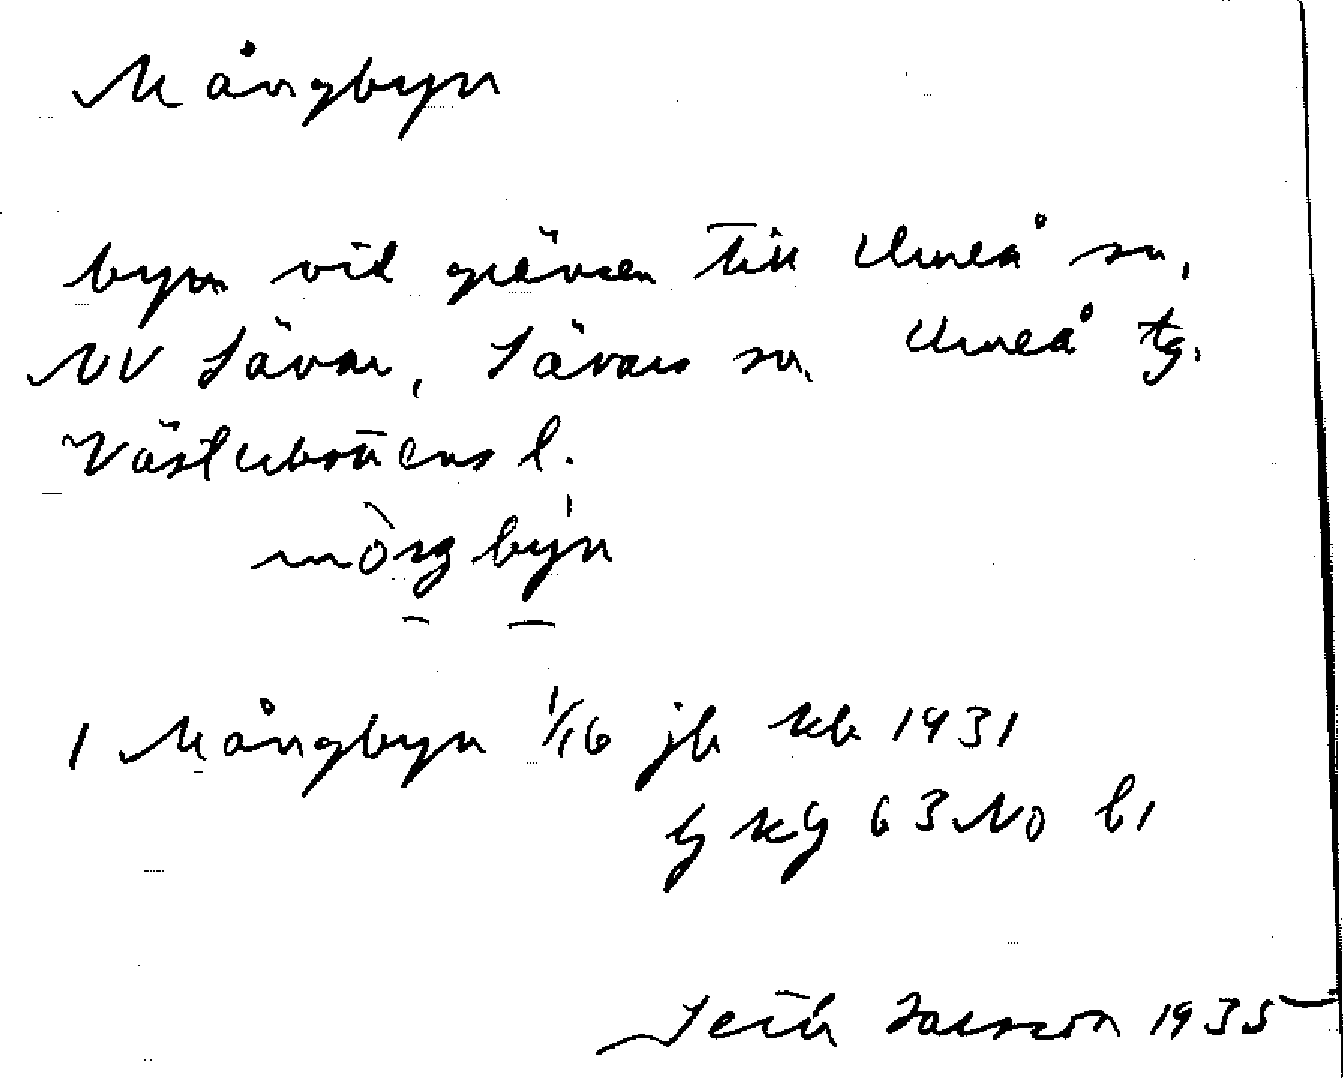 Mångbyn
byn vid gränsen till Umeå sn,
NV Sävar, Sävars sn, Umeå tg.
Västerbottens l.
mòŋgbýn
1 Mångbyn 1/16 jb kb 1931
GKG 63 NO b1
Seth Larsson 1935